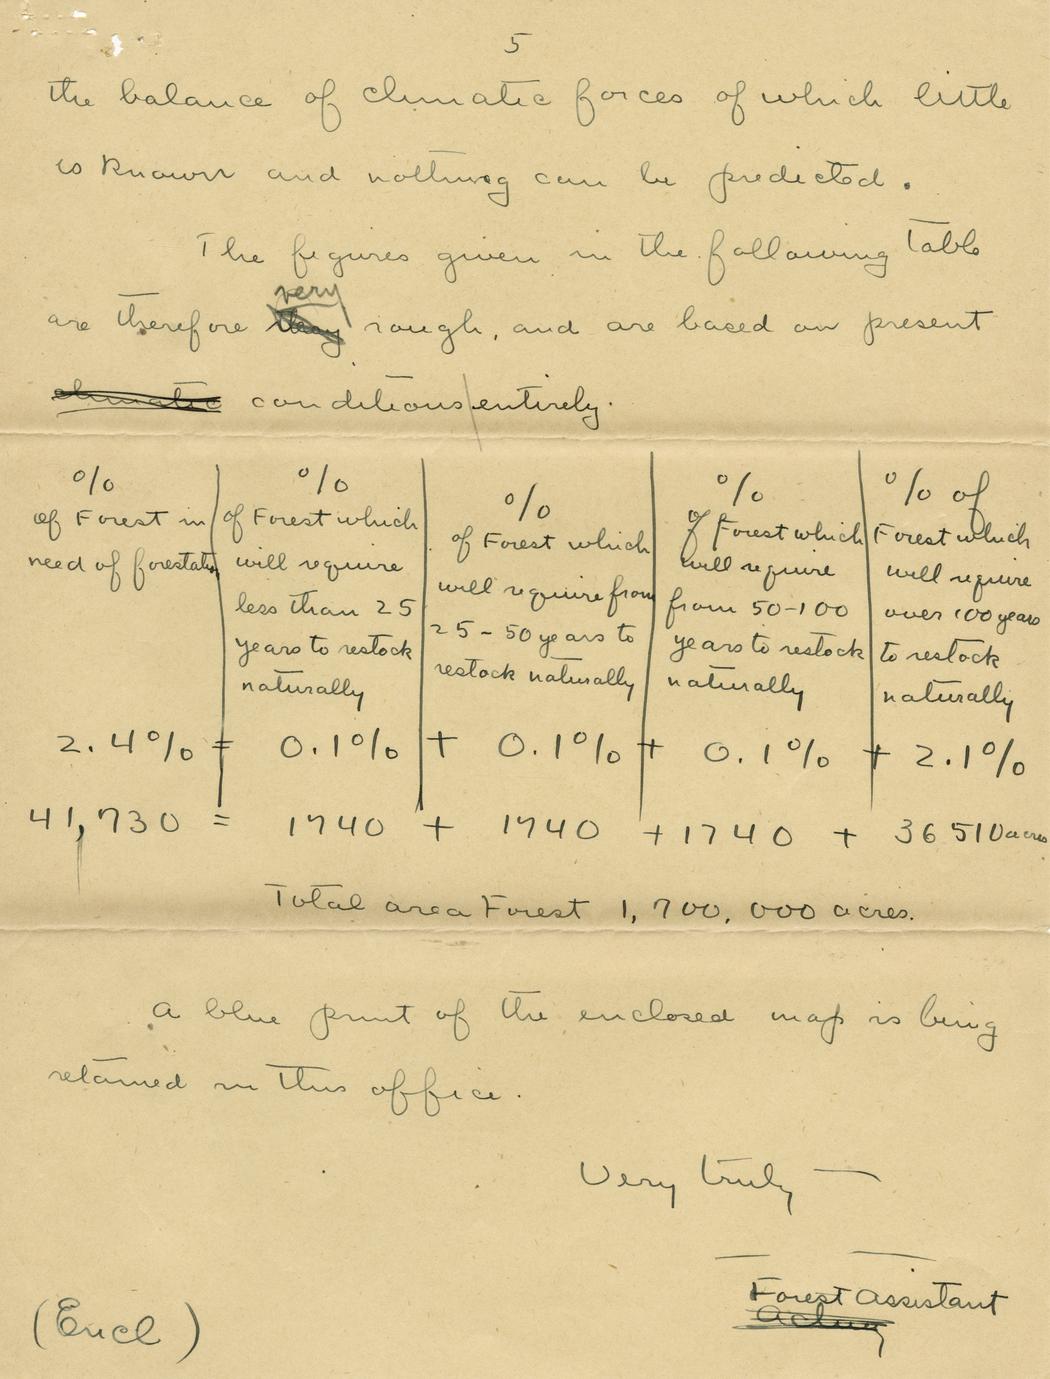 5
the balance of climatic forces of which little
is known and nothing can be predicted.
The figures given in the following table
very
are therefore they rough, and are based on present
climatic conditions entirely.
%
of Forest in
need of forestation
%
of Forest which
will require
less than 25
years to restock
naturally
%
of Forest which
will require from
25-50 years to
restock naturally
%
of Forest which
will require
from 50-100
years to restock
naturally
% of
Forest which
will require
over 100 years
to restock
naturally
2.4% = 0.1% + 0.1% + 0.1% + 2.1%
41,730 = 1740 + 1740 + 1740 + 36510 acres
Total area Forest 1,700,000 acres.
A blue print of the enclosed map is being
retained in this office.
Very truly
Forest Assistant
Acting
(Encl)